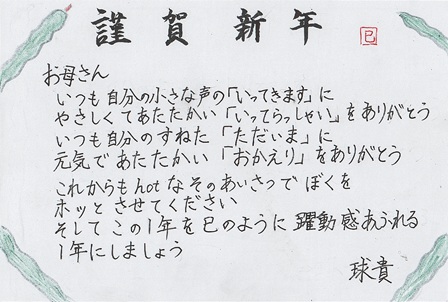 謹賀新年
巳
お母さん
いつも自分の小さな声の「いってきます」に
やさしくてあたたかい「いってらっしゃい」をありがとう
いつも自分のすねた「ただいま」に
元気であたたかい「おかえり」をありがとう
これからもhotなそのあいさつでぼくを
ホッとさせてください
そしてこの1年を巳のように躍動感あふれる
1年にしましょう
球貴